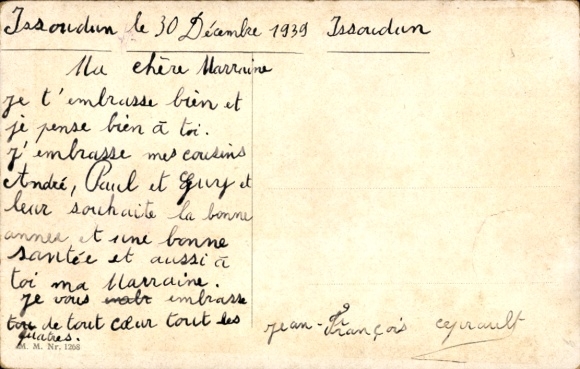 Issoudun le 30 Décembre 1939 Issoudun
Ma chère Marraine
je t'embrasse bien et
je pense bien à toi.
J'embrasse mes cousins
André, Paul et Guy et
leur souhaite la bonne
annea et une bonne
santée et aussi à
toi ma Marraine.
je vous embrasse
de tout cœur tout les
quatres.
M. M. Nr. 1268
Jean-François